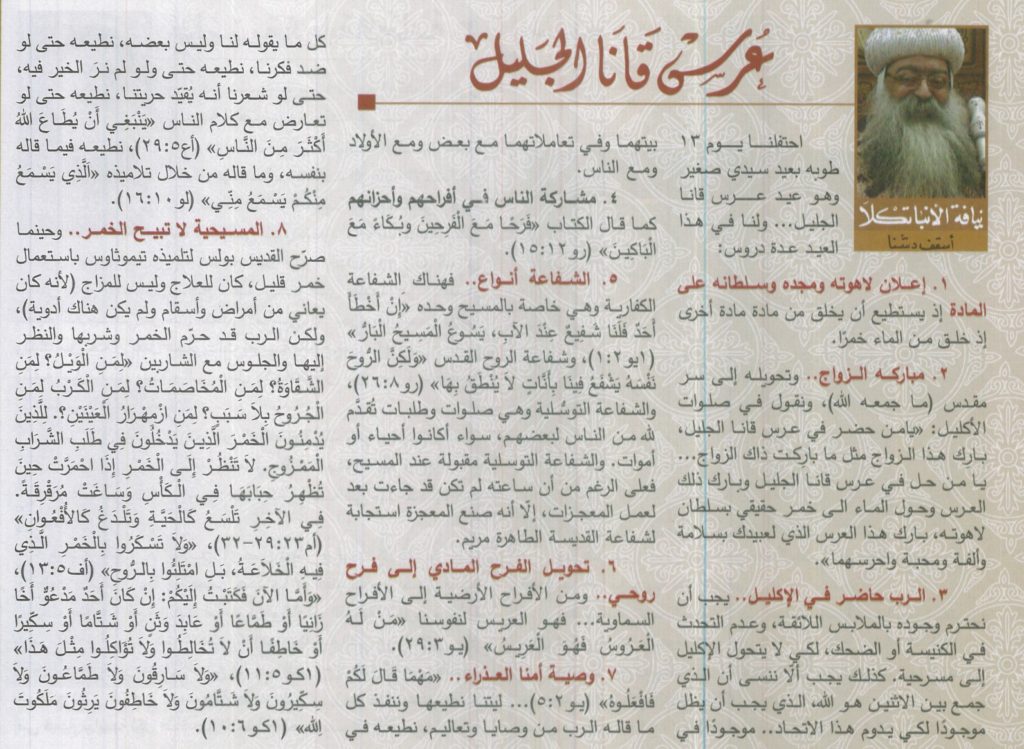 عُرس قَانَا الجَليل
نيافة الأنبا تكلا
أسقف دشنا
احتفلنا يوم ١٣
طوبه بعيد سيدي صغير
وهو عيد عرس قانا
الجليل... ولنا في هذا
العيد عدة دروس:
١. إعلان لاهوته ومجده وسلطانه على
المادة إذ يستطيع أن يخلق من مادة مادة أخرى
إذ خلق من الماء خمرًا.
٢. مباركه الزواج.. وتحويله إلى سر
مقدس (ما جمعه الله)، ونقول في صلوات
الأكليل: «يامن حضر في عرس قانا الجليل،
بارك هذا الزواج مثل ما باركت ذاك الزواج...
يا من حل في عرس قانا الجليل وبارك ذلك
العرس وحول الماء الى خمر حقيقي بسلطان
لاهوته، بارك هذا العرس الذي لعبيدك بسلامة
وألفة ومحبة واحرسهما».
٣. الرب حاضر في الإكليل.. يجب أن
نحترم وجوده بالملابس اللائقة، وعدم التحدث
في الكنيسة أو الضحك، لكي لا يتحول الإكليل
إلى مسرحية. كذلك يجب ألَّا ننسى أن الذي
جمع بين الاثنين هو الله، الذي يجب أن يظل
موجودًا لكي يدوم هذا الاتحاد.. موجودًا في
بيتهما وفي تعاملاتهما مع بعض ومع الأولاد
ومع الناس.
٤. مشاركة الناس في أفراحهم وأحزانهم
كما قال الكتاب «فَرَحًا مَعَ الْفَرِحِينَ وَبُكَاءً مَعَ
الْبَاكِينَ» (رو١٢:١٥).
٥. الشفاعة أنواع.. فهناك الشفاعة
الكفارية وهي خاصة بالمسيح وحده «إِنْ أَخْطَأَ
أَحَدٌ فَلَنَا شَفِيعٌ عِنْدَ الآبِ، يَسُوعُ الْمَسِيحُ الْبَارُّ»
(١يو٢:١)، وشفاعة الروح القدس «وَلَكِنَّ الرُّوحَ
نَفْسَهُ يَشْفَعُ فِينَا بِأَنَّاتٍ لاَ يُنْطَقُ بِهَا» (رو٨:٢٦)،
والشفاعة التوسُّلية وهي صلوات وطلبات تُقدَّم
لله من الناس لبعضهم، سواء أكانوا أحياء أو
أموات. والشفاعة التوسلية مقبولة عند المسيح،
فعلى الرغم من أن ساعته لم تكن قد جاءت بعد
لعمل المعجزات، إلَّا أنه صنع المعجزة استجابة
لشفاعة القديسة الطاهرة مريم.
٦. تحويل الفرح المادي إلى فرح
روحي.. ومن الأفراح الأرضية إلى الأفراح
السماوية... فهو العريس لنفوسنا «مَنْ لَهُ
الْعَرُوسُ فَهُوَ الْعَرِيسُ» (يو٣:٢٩).
٧. وصية أمنا العذراء.. «مَهْمَا قَالَ لَكُمْ
فَافْعَلُوهُ» (يو٢:٥)... ليتنا نطيعها وننفذ كل
ما قاله الرب من وصايا وتعاليم، نطيعه في
كل ما يقوله لنا وليس بعضه، نطيعه حتى لو
ضد فكرنا، نطيعه حتى ولو لم نرَ الخير فيه،
حتى لو شعرنا أنه يُقيّد حريتنا، نطيعه حتى لو
تعارض مع كلام الناس «يَنْبَغِي أَنْ يُطَاعَ اللهُ
أَكْثَرَ مِنَ النَّاسِ» (أع٥:٢٩)، نطيعه فيما قاله
بنفسه، وما قاله من خلال تلاميذه «اَلَّذِي يَسْمَعُ
مِنْكُمْ يَسْمَعُ مِنِّي» (لو١٠:١٦).
٨. المسيحية لا تبيح الخمر.. وحينما
صرّح القديس بولس لتلميذه تيموثاوس باستعمال
خمر قليل، كان للعلاج وليس للمزاج (لأنه كان
يعاني من أمراض وأسقام ولم يكن هناك أدوية)،
ولكن الرب قد حرّم الخمر وشربها والنظر
إليها والجلوس مع الشاربين «لمَنِ الْوَيْلُ؟ لِمَنِ
الشَّقَاوَةُ؟ لِمَنِ الْمُخَاصَمَاتُ؟ لِمَنِ الْكَرْبُ لِمَنِ
الْجُرُوحُ بِلاَ سَبَبٍ؟ لِمَنِ ازْمِهْرَارُ الْعَيْنَيْنِ؟. لِلَّذِينَ
يُدْمِنُونَ الْخَمْرَ الَّذِينَ يَدْخُلُونَ فِي طَلَبِ الشَّرَابِ
الْمَمْزُوجِ. لاَ تَنْظُرْ إِلَى الْخَمْرِ إِذَا احْمَرَّتْ حِينَ
تُظْهِرُ حِبَابَهَا فِي الْكَأْسِ وَسَاغَتْ مُرَقْرِقَةً.
فِي الآخِرِ تَلْسَعُ كَالْحَيَّةِ وَتَلْدَغُ كَالأُفْعُوانِ»
(أم٢٣:٢٩-٣٢)، «وَلاَ تَسْكَرُوا بِالْخَمْرِ الَّذِي
فِيهِ الْخَلاَعَةُ، بَلِ امْتَلِئُوا بِالرُّوحِ» (أف٥:١٣)،
«وَأَمَّا الآنَ فَكَتَبْتُ إِلَيْكُمْ: إِنْ كَانَ أَحَدٌ مَدْعُوٌّ أَخًا
زَانِيًا أَوْ طَمَّاعًا أَوْ عَابِدَ وَثَنٍ أَوْ شَتَّامًا أَوْ سِكِّيرًا
أَوْ خَاطِفًا أَنْ لاَ تُخَالِطُوا وَلاَ تُؤَاكِلُوا مِثْلَ هَذَا»
(١كو٥:١١)، «وَلاَ سَارِقُونَ وَلاَ طَمَّاعُونَ وَلاَ
سِكِّيرُونَ وَلاَ شَتَّامُونَ وَلاَ خَاطِفُونَ يَرِثُونَ مَلَكُوتَ
اللهِ» (١كو٦:١٠).